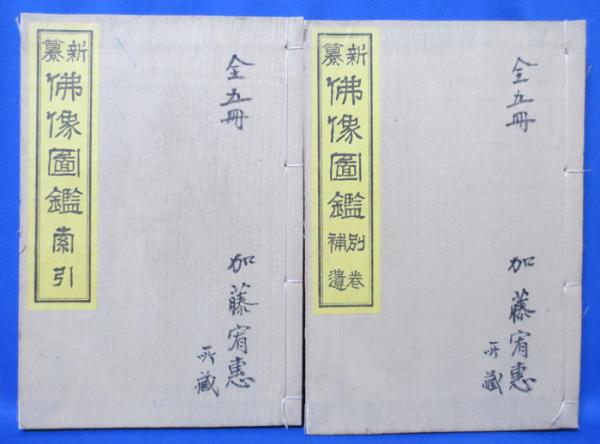 新纂
佛像圖鑑
索引
全五冊
加藤宥惠
所藏
新纂
佛像圖鑑
別卷
補遺
全五冊
加藤宥惠
所藏